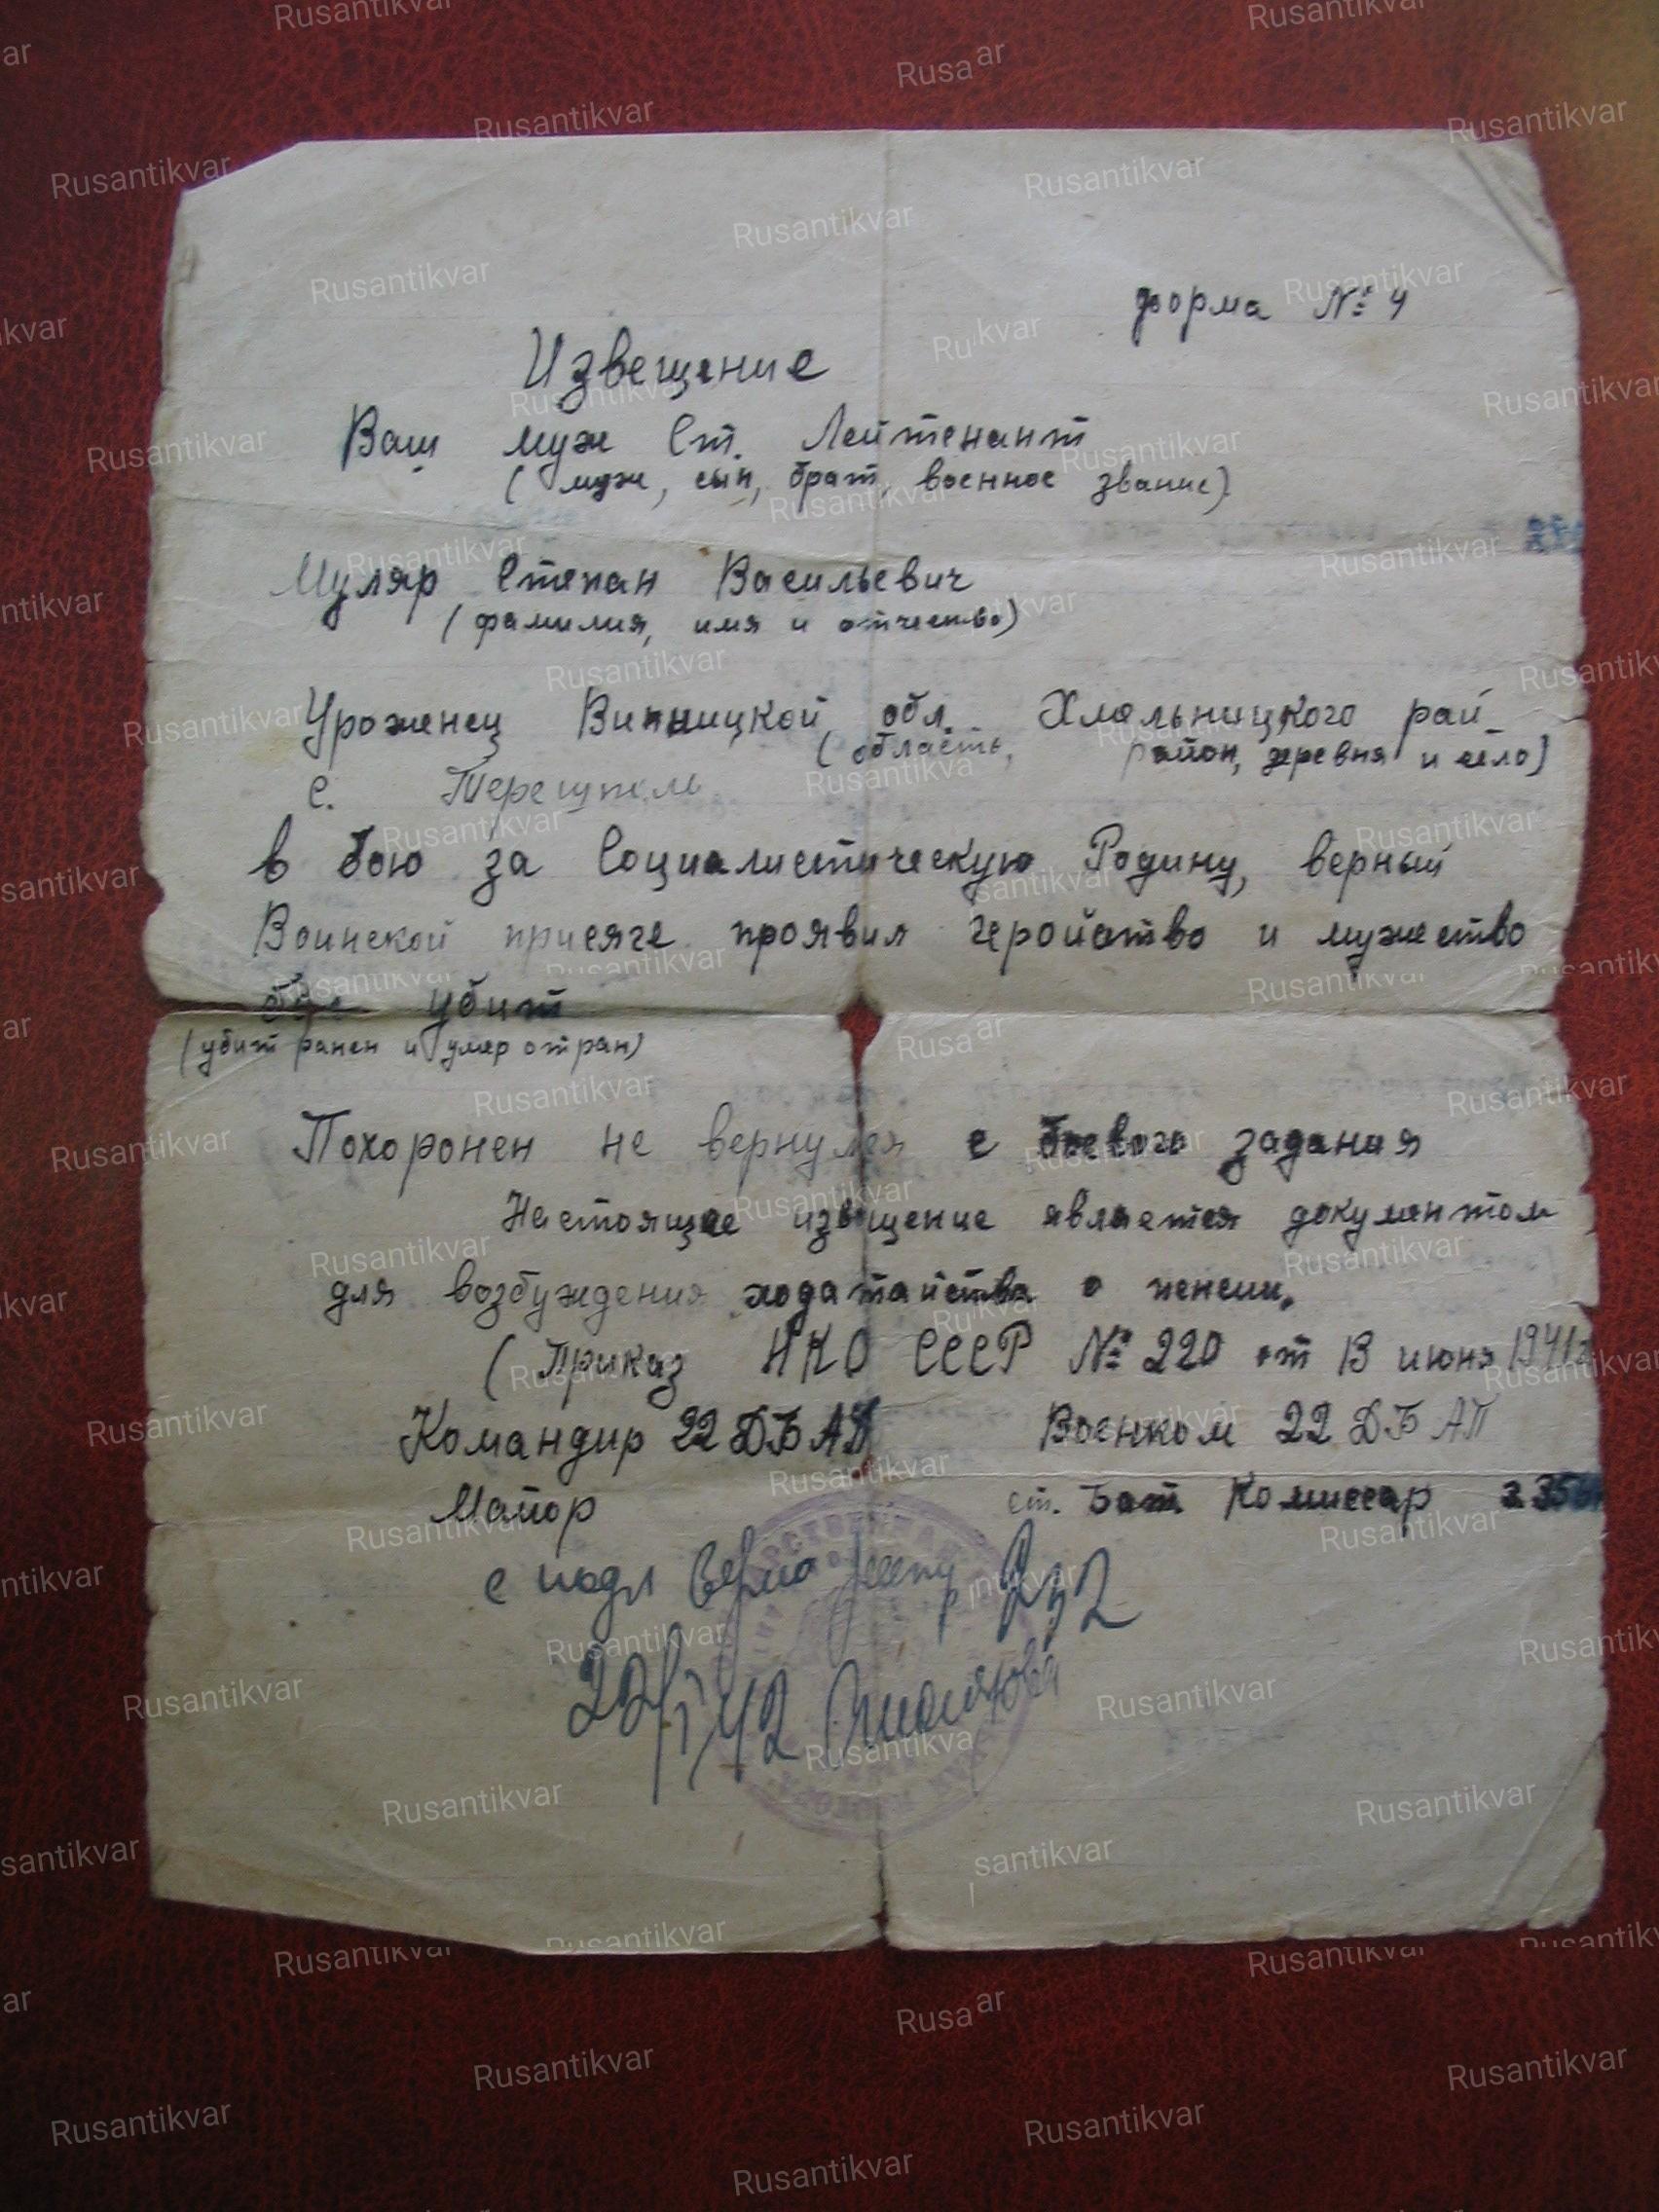 форма № 4
Извещение
Ваш муж Ст. Лейтенант
(муж, сын, брат, военное звание)
Муляр Степан Васильевич
(фамилия, имя и отчество)
Уроженец Винницкой обл. Хмельницкого рай
(область, район, деревня и село)
с.
в бою за Социалистическую Родину, верный
Воинской присяге проявил геройство и мужество
был убит
(убит ранен и умер от ран)
Похоронен не вернулся с боевого задания
Настоящее извещение является документом
для возбуждения ходатайства о пенсии.
(Приказ НКО СССР № 220 от 13 июня 1941г
Командир 22 ДБАП Военком 22 ДБАП
Майор ст. Бат Комиссар
с подл верно
22/I 42
Rusantikvar